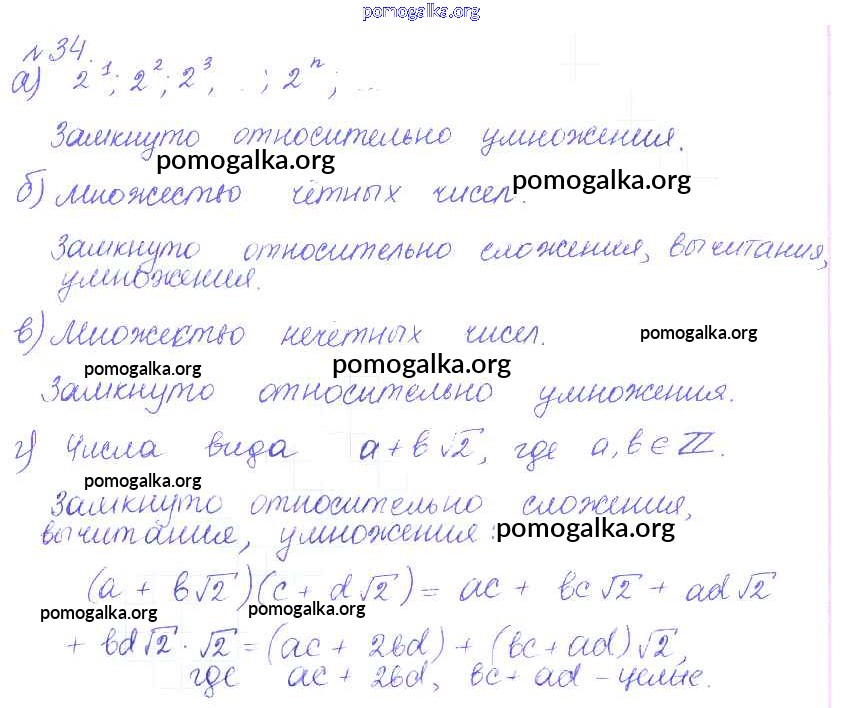 pomogalka.org
№34.
а) 2¹; 2²; 2³, ...; 2ⁿ; ...
Замкнуто относительно умножения.
pomogalka.org
pomogalka.org
б) Множество чётных чисел.
Замкнуто относительно сложения, вычитания,
умножения.
в) Множество нечётных чисел.
pomogalka.org
pomogalka.org
pomogalka.org
Замкнуто относительно умножения.
г) Числа вида a+b√2, где a,b∈ℤ.
pomogalka.org
Замкнуто относительно сложения,
вычитания, умножения:
pomogalka.org
(a + b√2)(c + d√2) = ac + bc√2 + ad√2
pomogalka.org
pomogalka.org
+ bd√2 · √2 = (ac + 2bd) + (bc + ad)√2,
где ac + 2bd, bc + ad - целые.